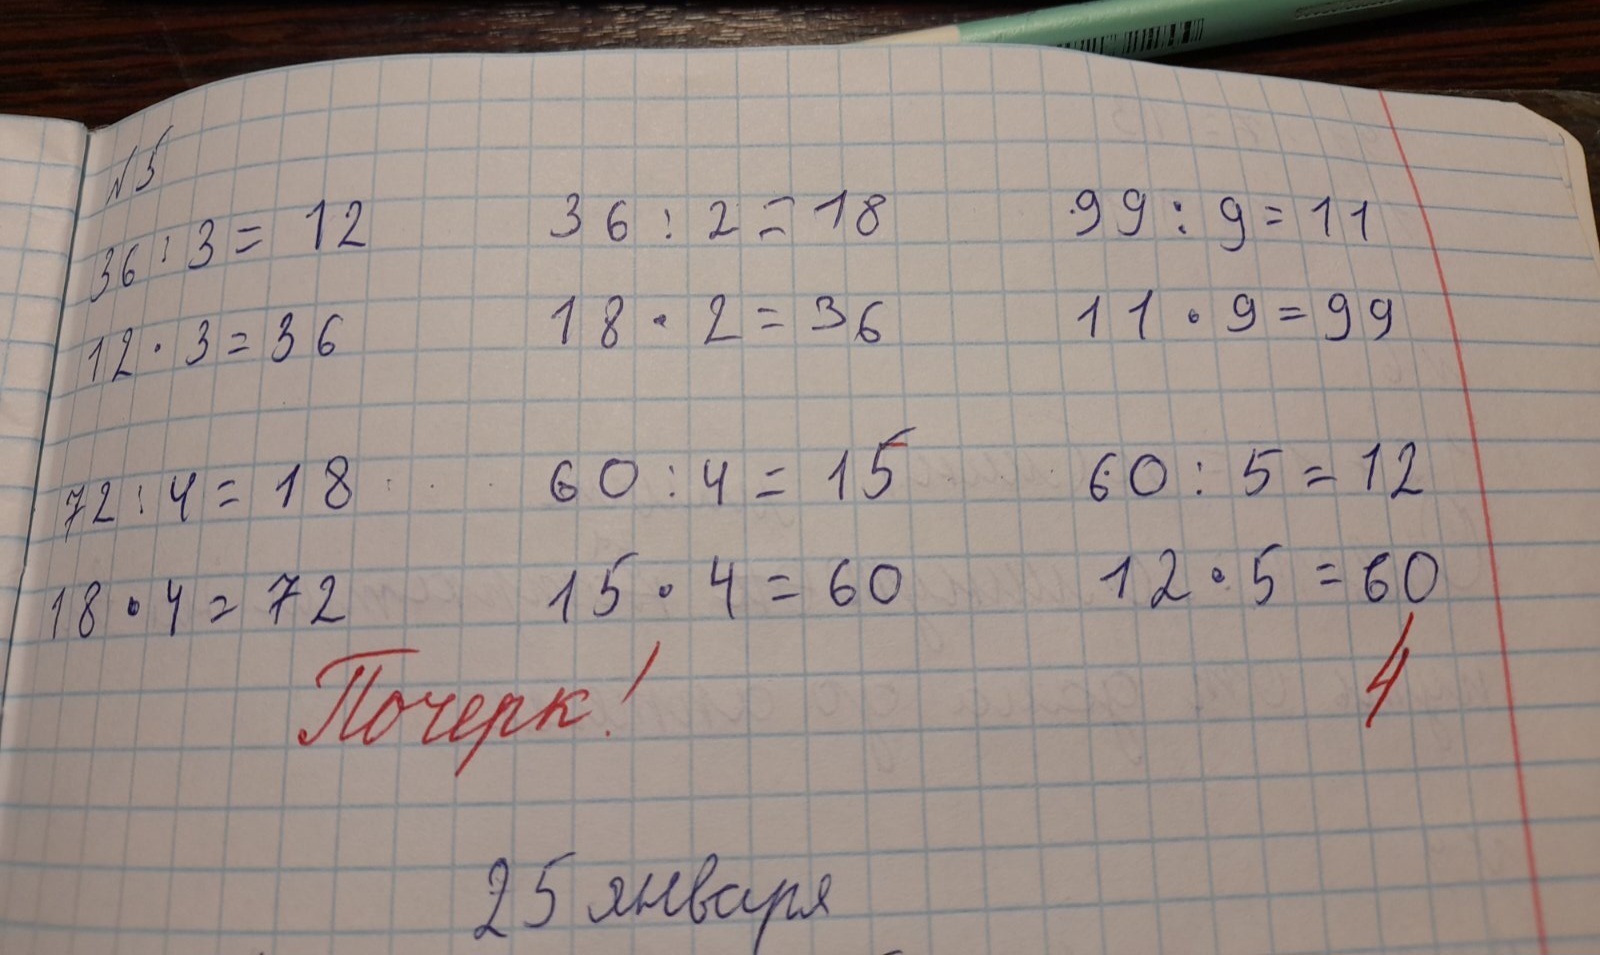 №5
36:3=12 36:2=18 99:9=11
12·3=36 18·2=36 11·9=99
72:4=18 60:4=15 60:5=12
18·4=72 15·4=60 12·5=60
Почерк! 4
25 января